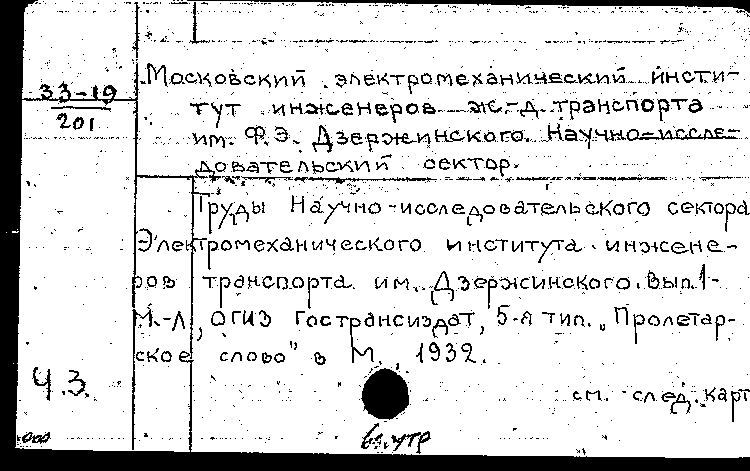 33-19
201
Московский электромеханический инсти-
тут инженеров ж.-д. транспорта
им. Ф.Э. Дзержинского. Научно-иссле-
довательский сектор.
Труды Научно-исследовательского сектора
Электромеханического института инжене-
ров транспорта им. Дзержинского. Вып. 1-
М.-Л., ОГИЗ Гострансиздат, 5-я тип. „Пролетар-
ское слово" в М., 1932.
Ч.З.
см. след. карт